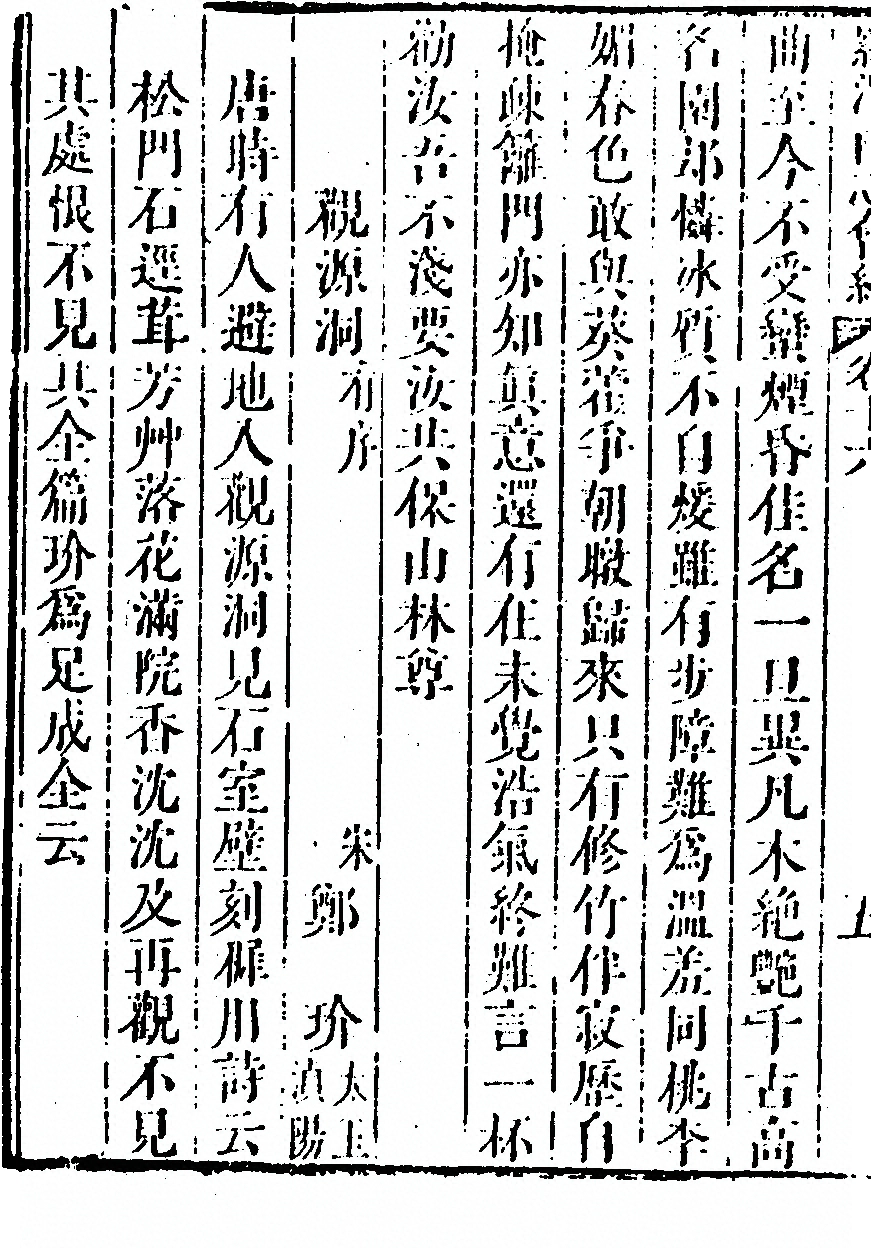 曲至今不受蠻煙昏佳名一旦異凡木絶艷千古高
名園却憐冰質不自煖雖有步障難爲溫羞同桃李
媚春色敢與葵藿爭朝暾歸來只有修竹伴寂歷自
掩疎籬門亦知真意還有在未覺浩氣終難言一杯
勸汝吾不淺要汝共保山林尊
觀源洞 有序 宋 鄭 玠
唐時有人避地入觀源洞見石室壁刻輞川詩云
松門石逕茸芳艸落花滿院香沈沈及再觀不見
其處恨不見其全篇玠爲足成全云